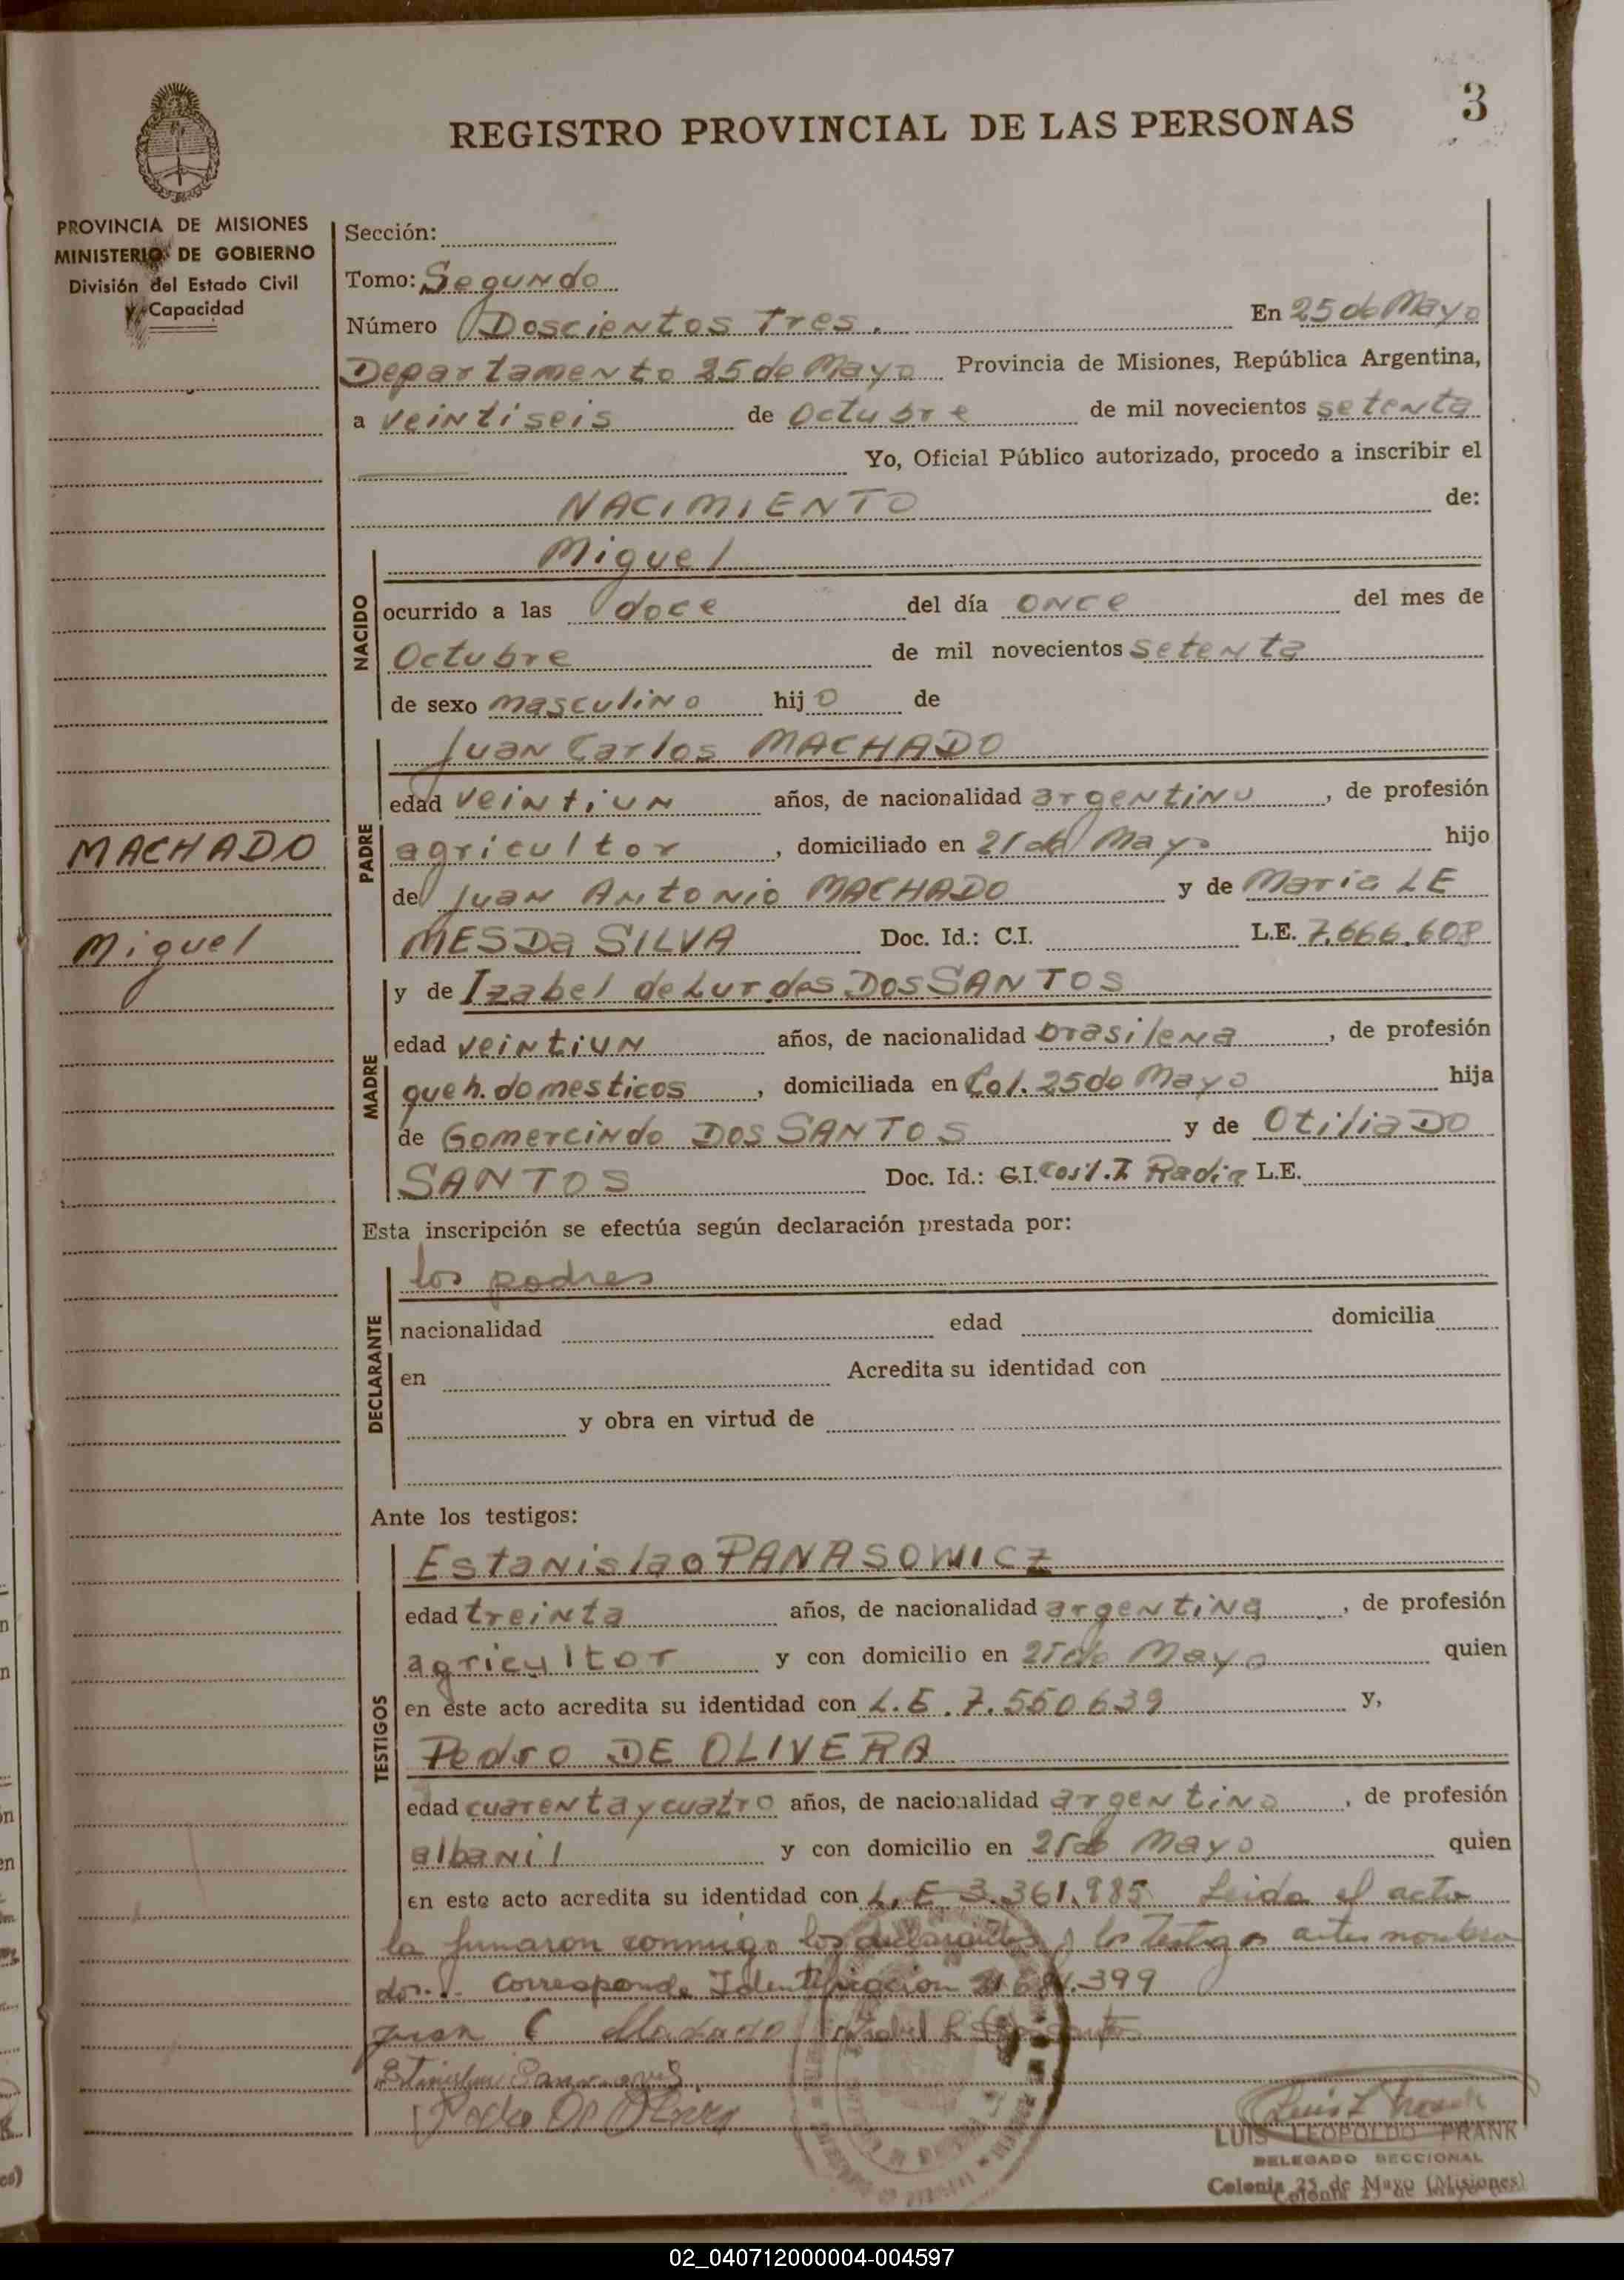 3
REGISTRO PROVINCIAL DE LAS PERSONAS
PROVINCIA DE MISIONES
MINISTERIO DE GOBIERNO
División del Estado Civil
y Capacidad
MACHADO
Miguel
Sección:
Tomo: Segundo
Número Doscientos Tres. En 25 de Mayo
Departamento 25 de Mayo Provincia de Misiones, República Argentina,
a veintiseis de Octubre de mil novecientos setenta
Yo, Oficial Público autorizado, procedo a inscribir el
NACIMIENTO de:
NACIDO
Miguel
ocurrido a las doce del día once del mes de
Octubre de mil novecientos setenta
de sexo masculino hijo de
PADRE
Juan Carlos MACHADO
edad veintiun años, de nacionalidad argentino, de profesión
agricultor, domiciliado en 25 de Mayo hijo
de Juan Antonio MACHADO y de Maria LE
MES Da SILVA Doc. Id.: C.I. L.E. 7.666.608
MADRE
y de Izabel de Lurdes DOS SANTOS
edad veintiun años, de nacionalidad brasilena, de profesión
queh. domesticos, domiciliada en Col. 25 de Mayo hija
de Gomercindo DOS SANTOS y de Otilia DO
SANTOS Doc. Id.: C.I. L.E.
Esta inscripción se efectúa según declaración prestada por:
DECLARANTE
los padres
nacionalidad edad domicilia
en Acredita su identidad con
y obra en virtud de
Ante los testigos:
TESTIGOS
Estanislao PANASOWICZ
edad treinta años, de nacionalidad argentina, de profesión
agricultor y con domicilio en 25 de Mayo quien
en este acto acredita su identidad con L.E. 7.550639 y,
Pedro DE OLIVERA
edad cuarenta y cuatro años, de nacionalidad argentino, de profesión
albanil y con domicilio en 25 de Mayo quien
en este acto acredita su identidad con L.E 3.361.985 Leida el acta
la firmaron conmigo los declarantes y los testigos antes nombra
dos. Corresponde Identificacion 21.681.399
Juan C Machado Izabel L Dos Santos
LUIS LEOPOLDO FRANK
DELEGADO SECCIONAL
Colonia 25 de Mayo (Misiones)
02_040712000004-004597